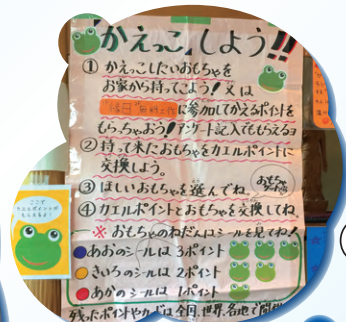 「かえっこ」しよう!!
① かえっこしたいおもちゃを
お家から持ってこよう！又は
に参加してかえるポイントを
もらっちゃおう！アンケート記入でももらえるヨ
② 持って来たおもちゃをカエルポイントに
交換しよう。
③ ほしいおもちゃを選んでね。
おもちゃ
④ カエルポイントとおもちゃを交換してね。
※ おもちゃのねだんはシールを見てね！
あおのシールは 3ポイント
きいろのシールは 2ポイント
あかのシールは 1ポイント
残ったポイントやカードは全国、世界、各地で開催
ここで
カエルポイントが
もらえるよ！